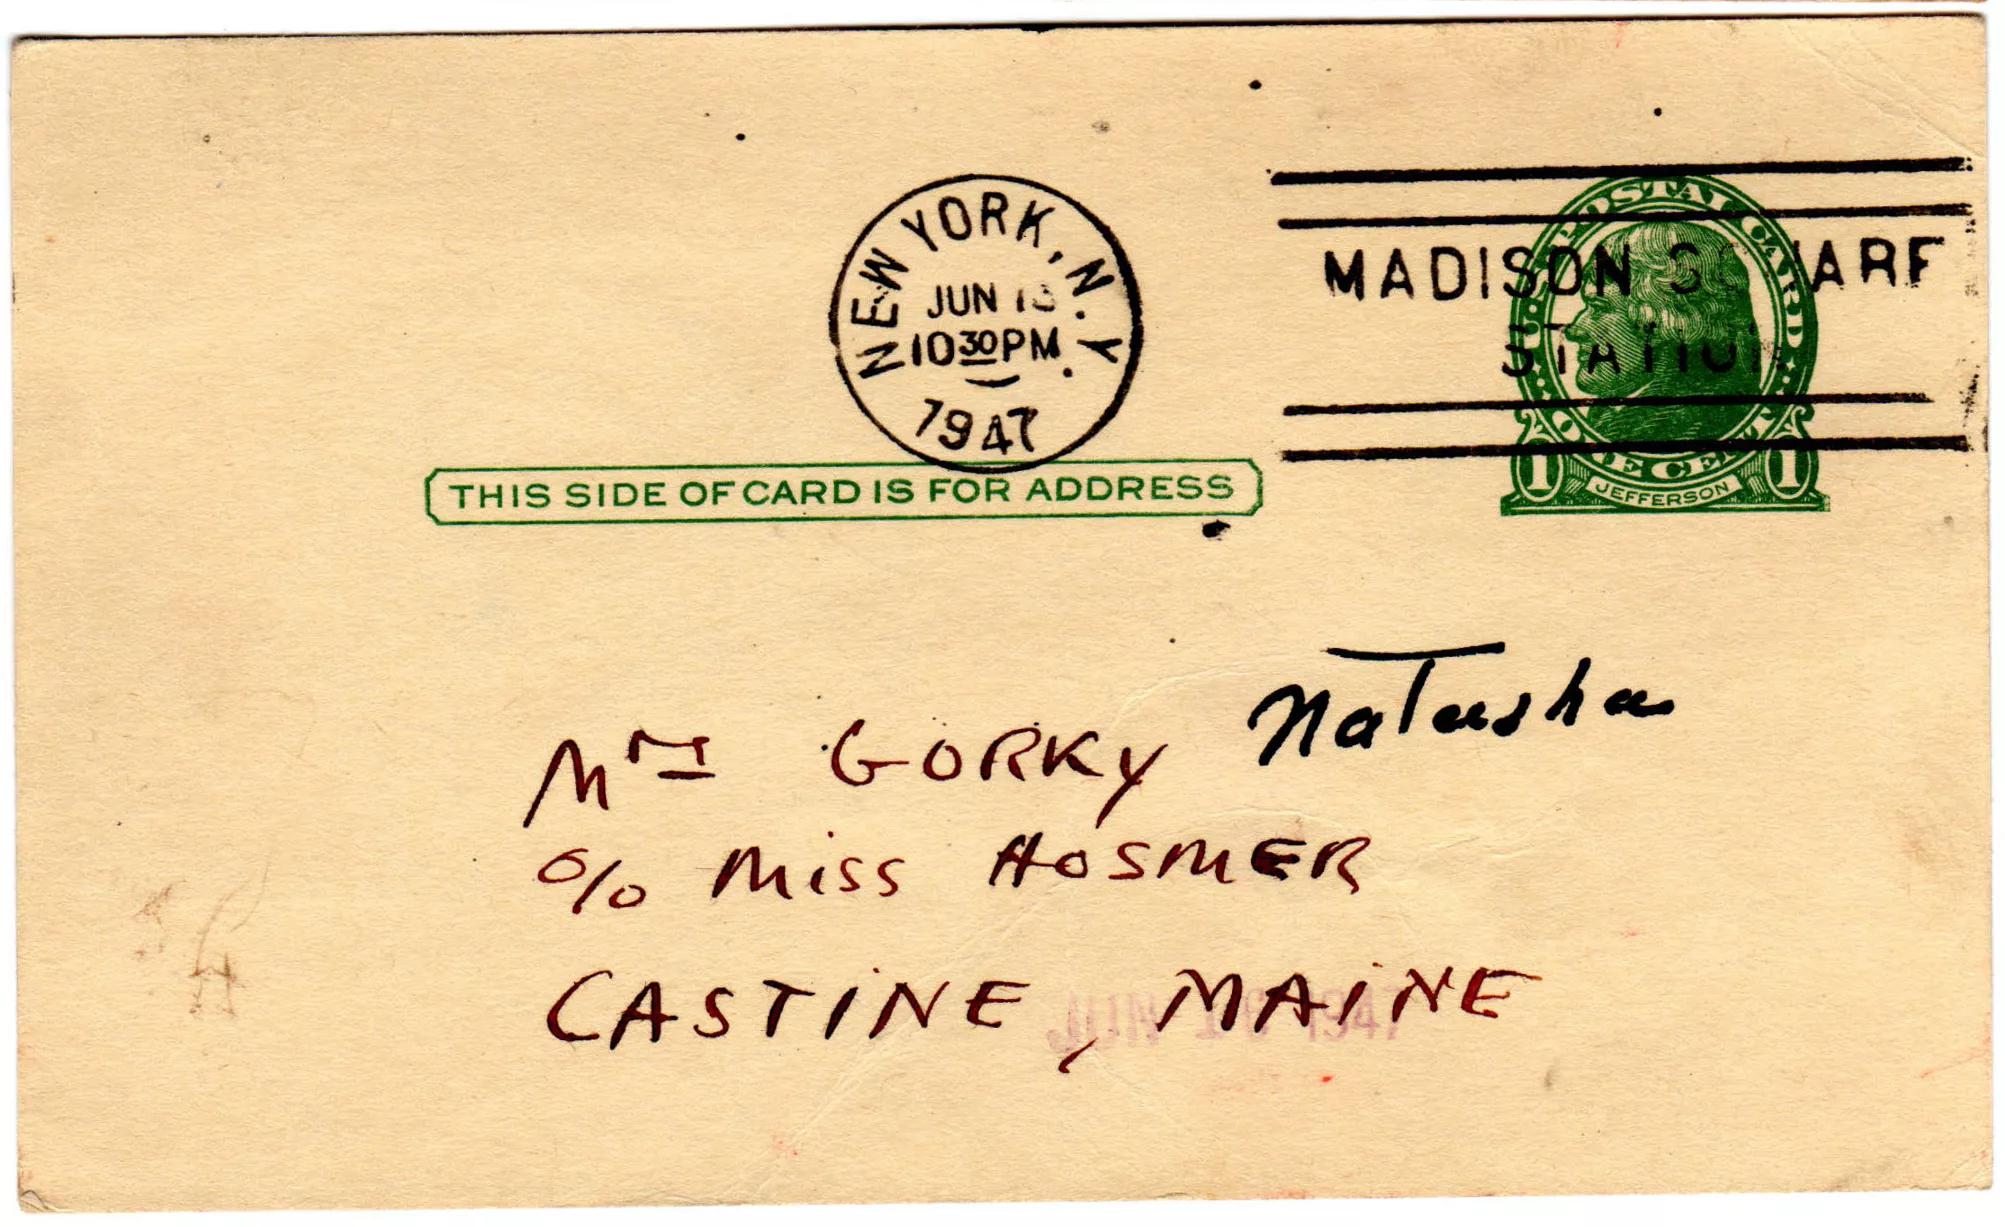 NEW YORK, N.Y.
JUN 13
10 30 PM
1947
MADISON SQUARE
STATION
U.S. POSTAL CARD
ONE CENT
1 JEFFERSON 1
THIS SIDE OF CARD IS FOR ADDRESS
Mrs GORKY Natasha
c/o Miss HOSMER
CASTINE, MAINE
JUN 1947